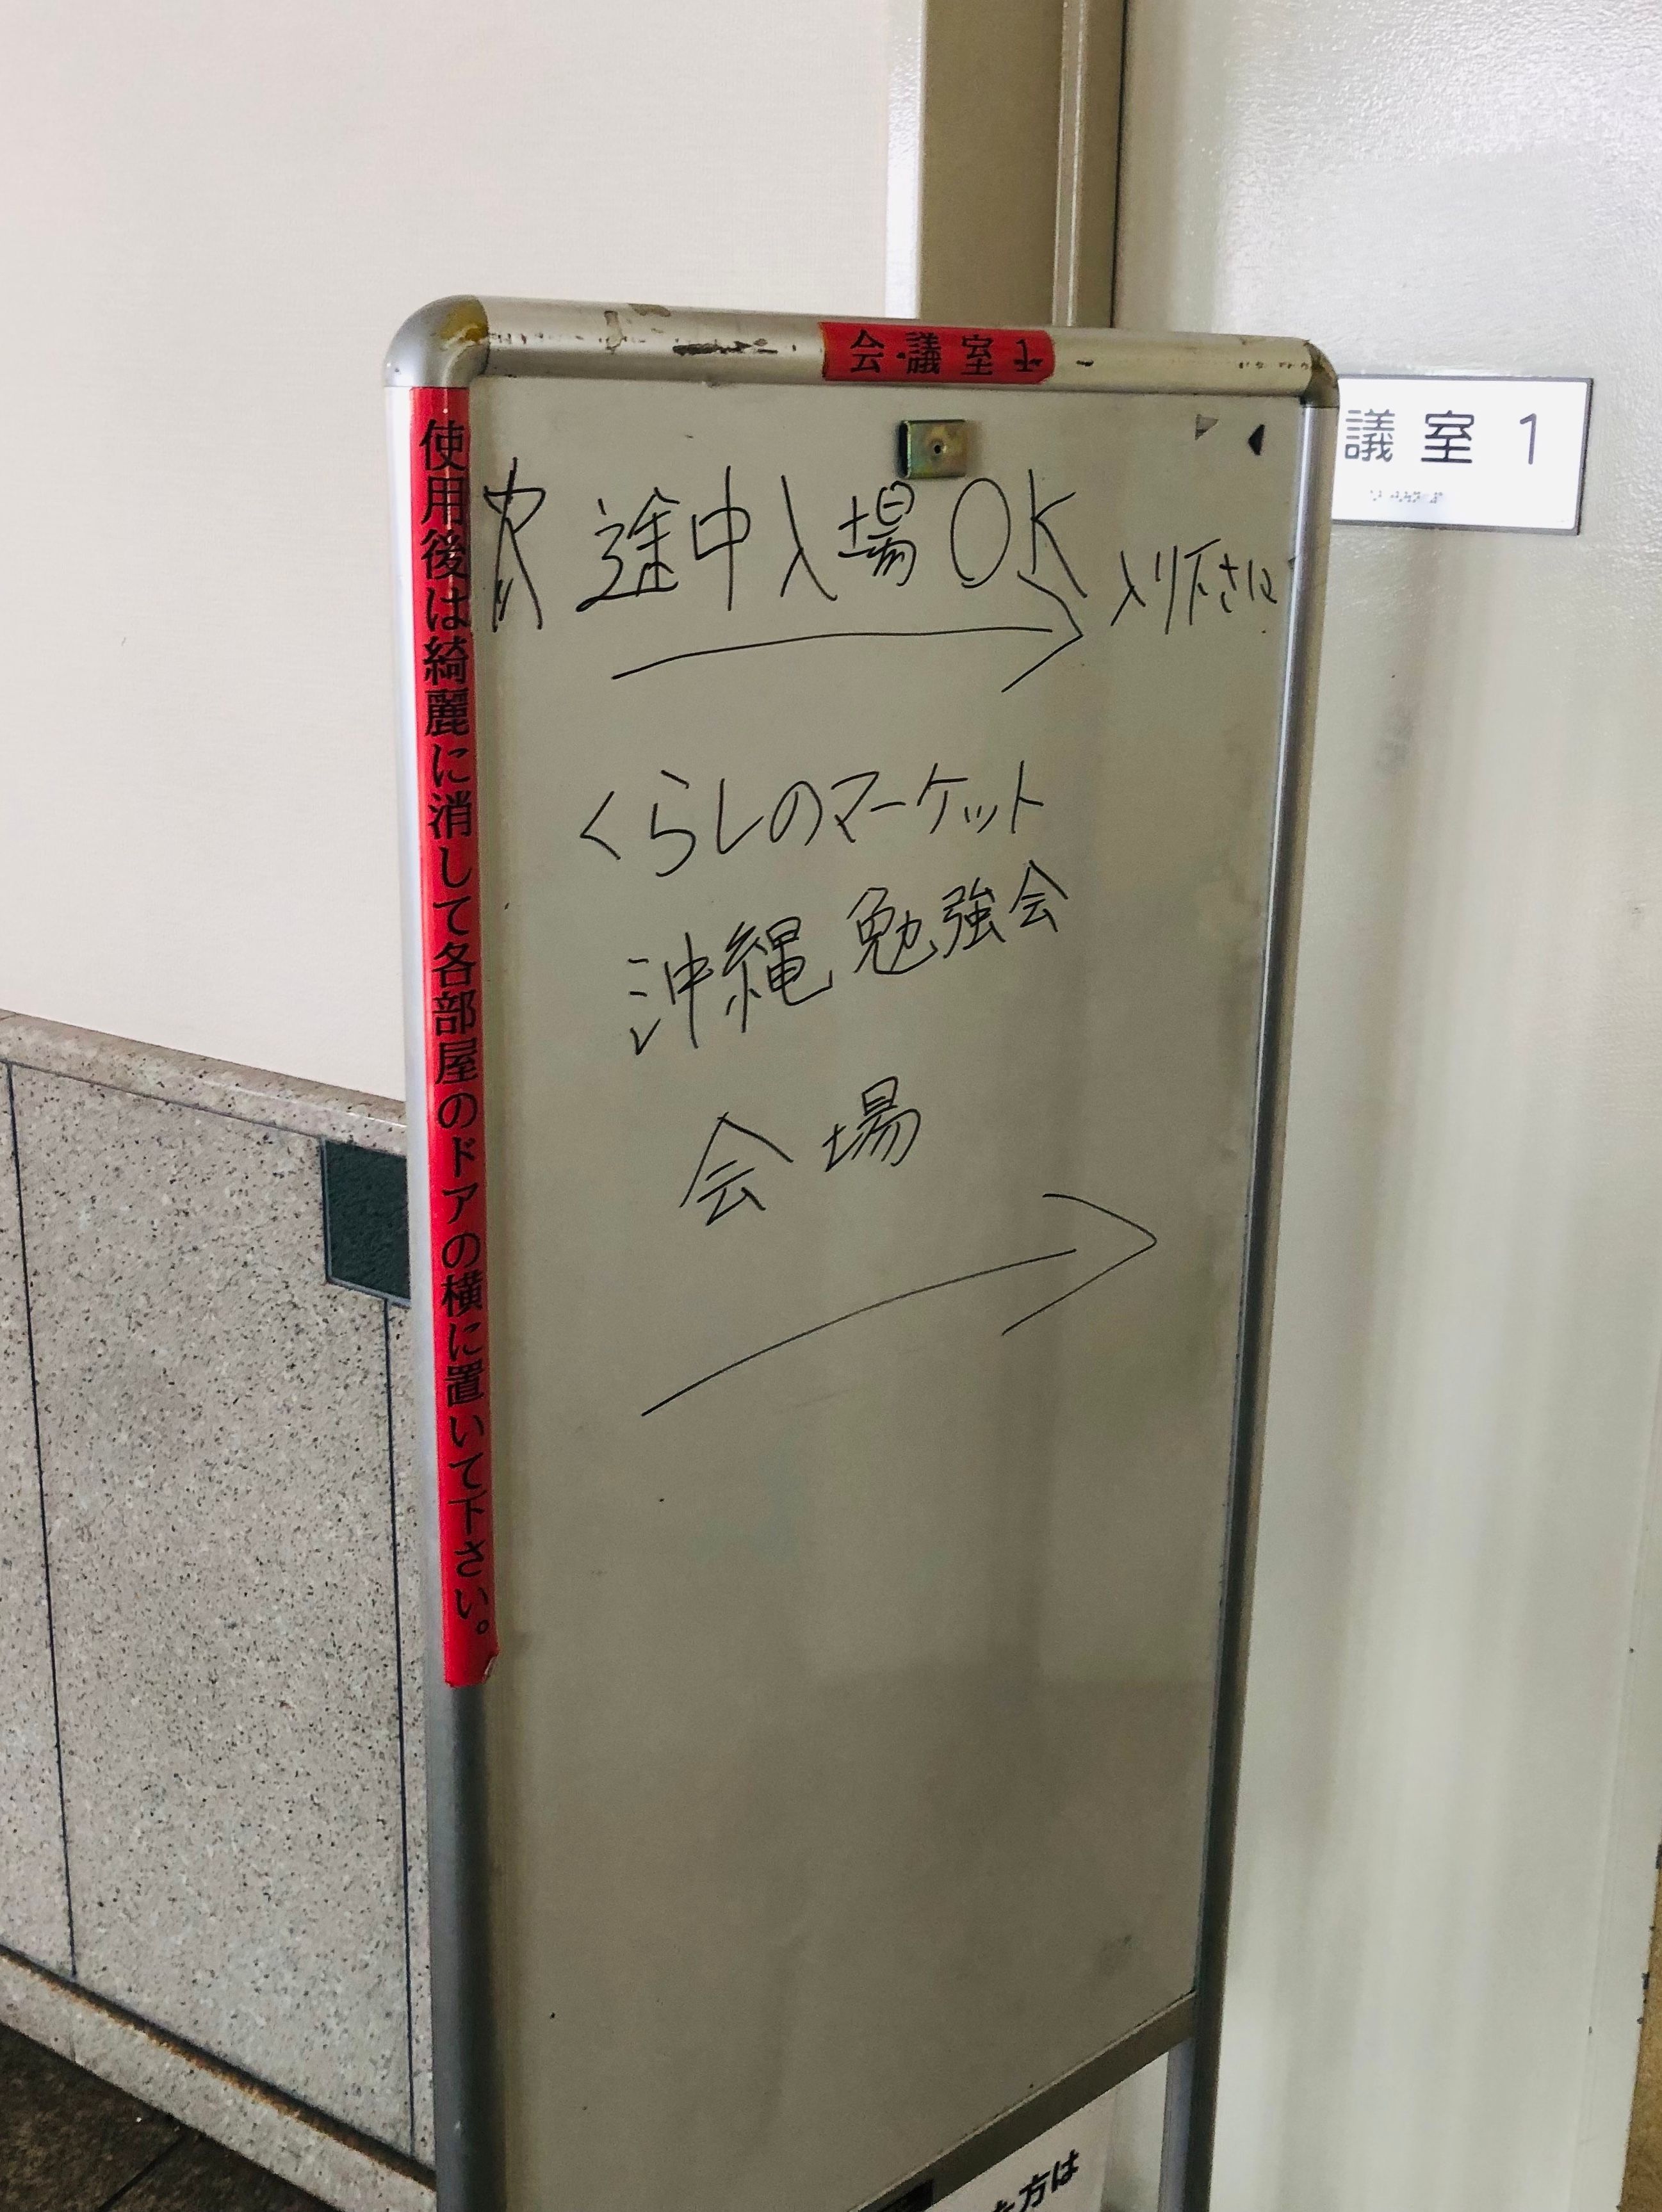 会議室1
議室 1
使用後は綺麗に消して各部屋のドアの横に置いて下さい。
途中入場OK
入り下さい
くらしのマーケット
沖縄勉強会
会場
方は